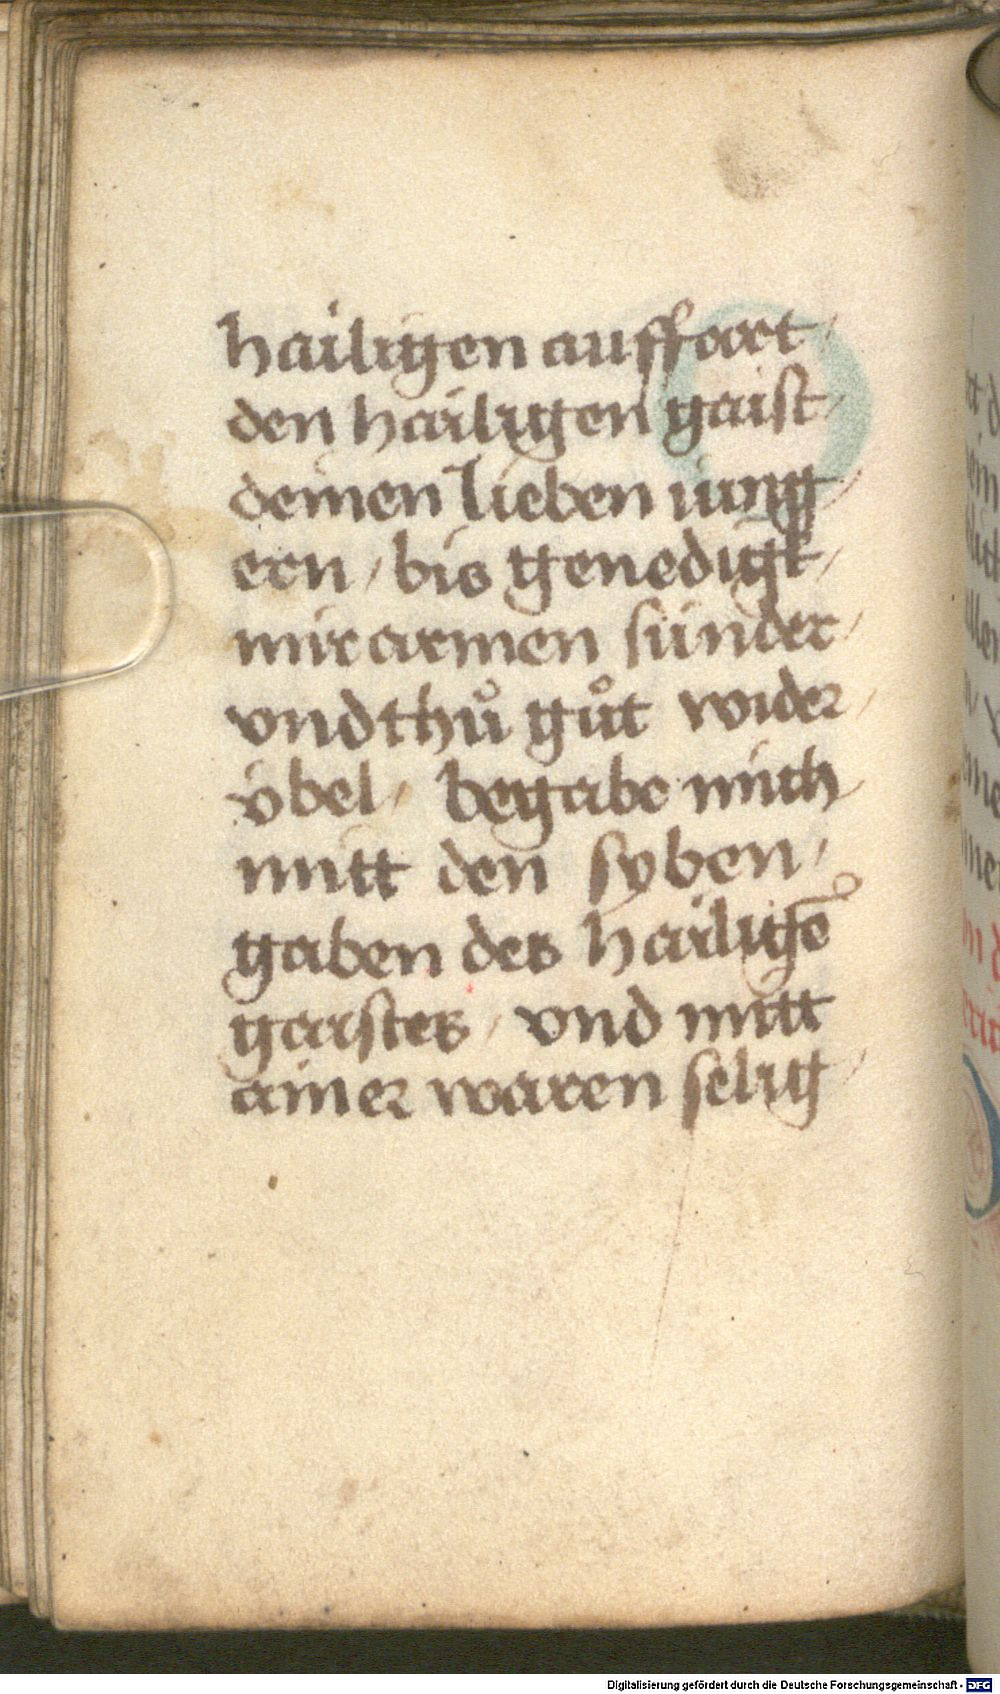 hailigen auffart /
den hailigen gaist /
deinen lieben iung /
ern / bis genedigk /
mir armen sünder /
vnd thuͦ guͦt wider /
v̈bel / begabe mich /
mitt den syben /
gaben des hailigē
gaistes / vnd mitt
ainer waren selig /
Digitalisierung gefördert durch die Deutsche Forschungsgemeinschaft - DFG